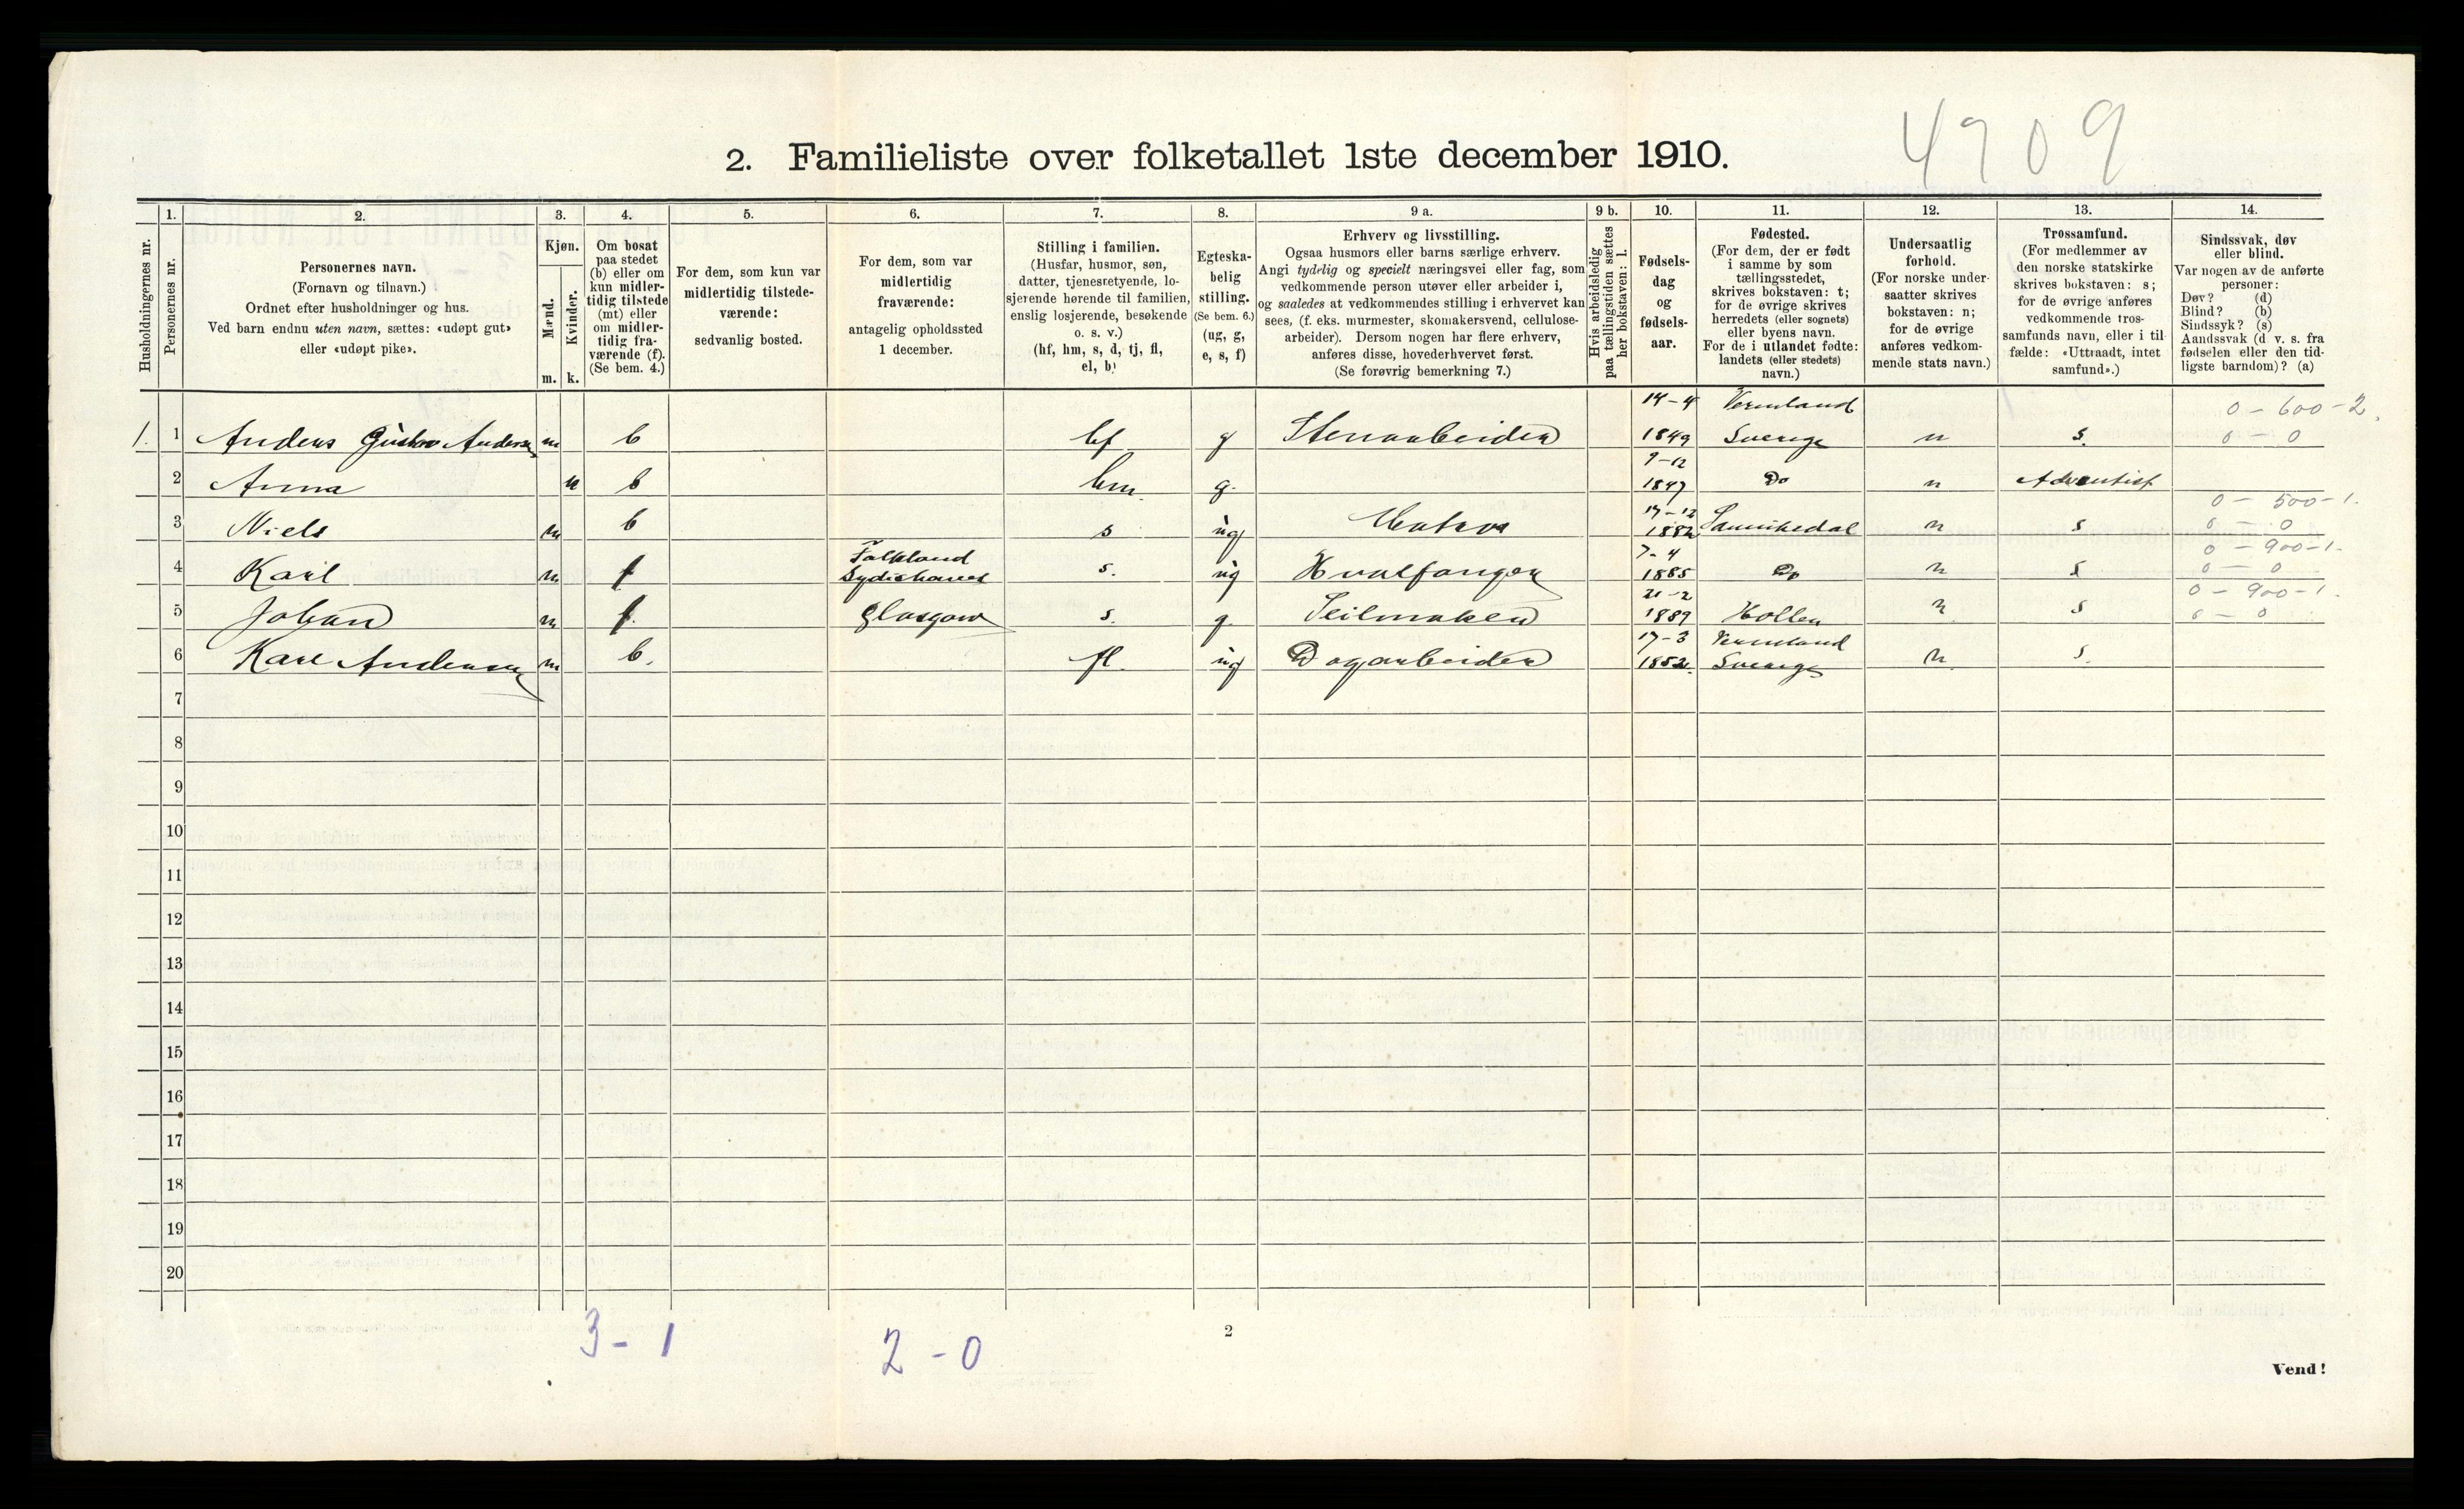 4909
2. Familieliste over folketallet 1ste december 1910.
Husholdningernes nr.
1. Personernes nr.
2. Personernes navn.
(Fornavn og tilnavn.)
Ordnet efter husholdninger og hus.
Ved barn endnu uten navn, sættes: «udøpt gut»
eller «udøpt pike».
3. Kjøn.
Mænd. m.
Kvinder. k.
4. Om bosat
paa stedet
(b) eller om
kun midler-
tidig tilstede
(mt) eller
om midler-
tidig fra-
værende (f).
(Se bem. 4.)
5. For dem, som kun var
midlertidig tilstede-
værende:
sedvanlig bosted.
6. For dem, som var
midlertidig
fraværende:
antagelig opholdssted
1 december.
7. Stilling i familien.
(Husfar, husmor, søn,
datter, tjenesretyende, lo-
sjerende hørende til familien,
enslig losjerende, besøkende
o. s. v.)
(hf, hm, s, d, tj, fl,
el, b)
8. Egteska-
belig
stilling.
(Se bem. 6.)
(ug, g,
e, s, f)
9 a. Erhverv og livsstilling.
Ogsaa husmors eller barns særlige erhverv.
Angi tydelig og specielt næringsvei eller fag, som
vedkommende person utøver eller arbeider i,
og saaledes at vedkommendes stilling i erhvervet kan
sees, (f. eks. murmester, skomakersvend, cellulose-
arbeider). Dersom nogen har flere erhverv,
anføres disse, hovederhvervet først.
(Se forøvrig bemerkning 7.)
9 b. Hvis arbeidsledig
paa tællingstiden sættes
her bokstaven: l.
10. Fødsels-
dag
og
fødsels-
aar.
11. Fødested.
(For dem, der er født
i samme by som
tællingsstedet,
skrives bokstaven: t;
for de øvrige skrives
herredets (eller sognets)
eller byens navn.
For de i utlandet fødte:
landets (eller stedets)
navn.)
12. Undersaatlig
forhold.
(For norske under-
saatter skrives
bokstaven: n;
for de øvrige
anføres vedkom-
mende stats navn.)
13. Trossamfund.
(For medlemmer av
den norske statskirke
skrives bokstaven: s;
for de øvrige anføres
vedkommende tros-
samfunds navn, eller i til
fælde: «Uttraadt, intet
samfund».)
14. Sindssvak, døv
eller blind.
Var nogen av de anførte
personer:
Døv? (d)
Blind? (b)
Sindssyk? (s)
Aandssvak (d v. s. fra
fødselen eller den tid-
ligste barndom)? (a)
14-4 Vermland 0 - 600 - 2.
1. 1 Anders Gustav Andersen m b hf g Stenarbeider 1849 Sverige n s. 0 - 0
9-12
2 Anna k b hm. g. 1847 Do n Adventist
17-12 0 - 500 - 1.
3 Niels m b s ug Matros 1882 Sannikedal n s 0 - 0
Falkland 7-4 0 - 900 - 1.
4 Karl m f Sydishavet s. ug Hvalfanger 1885 Do n s 0 - 0
21-2 0 - 900 - 1.
5 Johan m f. Glasgow s. g. Seilmaker 1889 Hollen n s 0 - 0
17-3 Vermland
6 Karl Andersen m b. fl. ug Dagarbeider 1852. Sverige n. s.
7
8
9
10
11
12
13
14
15
16
17
18
19
20
3 - 1
2 - 0
2
Vend!